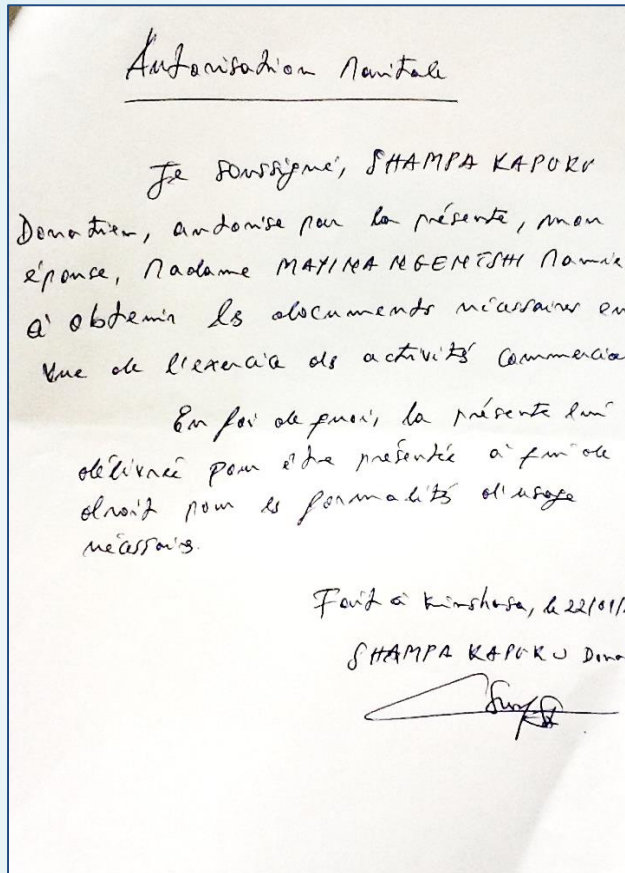 Autorisation Maritale
Je soussigné, SHAMPA KAPUKU
Donatien, autorise par la présente, mon
épouse, Madame MAYIMA NGEMESHI
à obtenir les documents nécessaires en
vue de l'exercice des activités commercia
En foi de quoi, la présente lui
délivrée pour être présentée à qui de
droit pour les formalités d'usage
nécessaires.
Fait à Kinshasa, le 22/01/
SHAMPA KAPUKU Dona